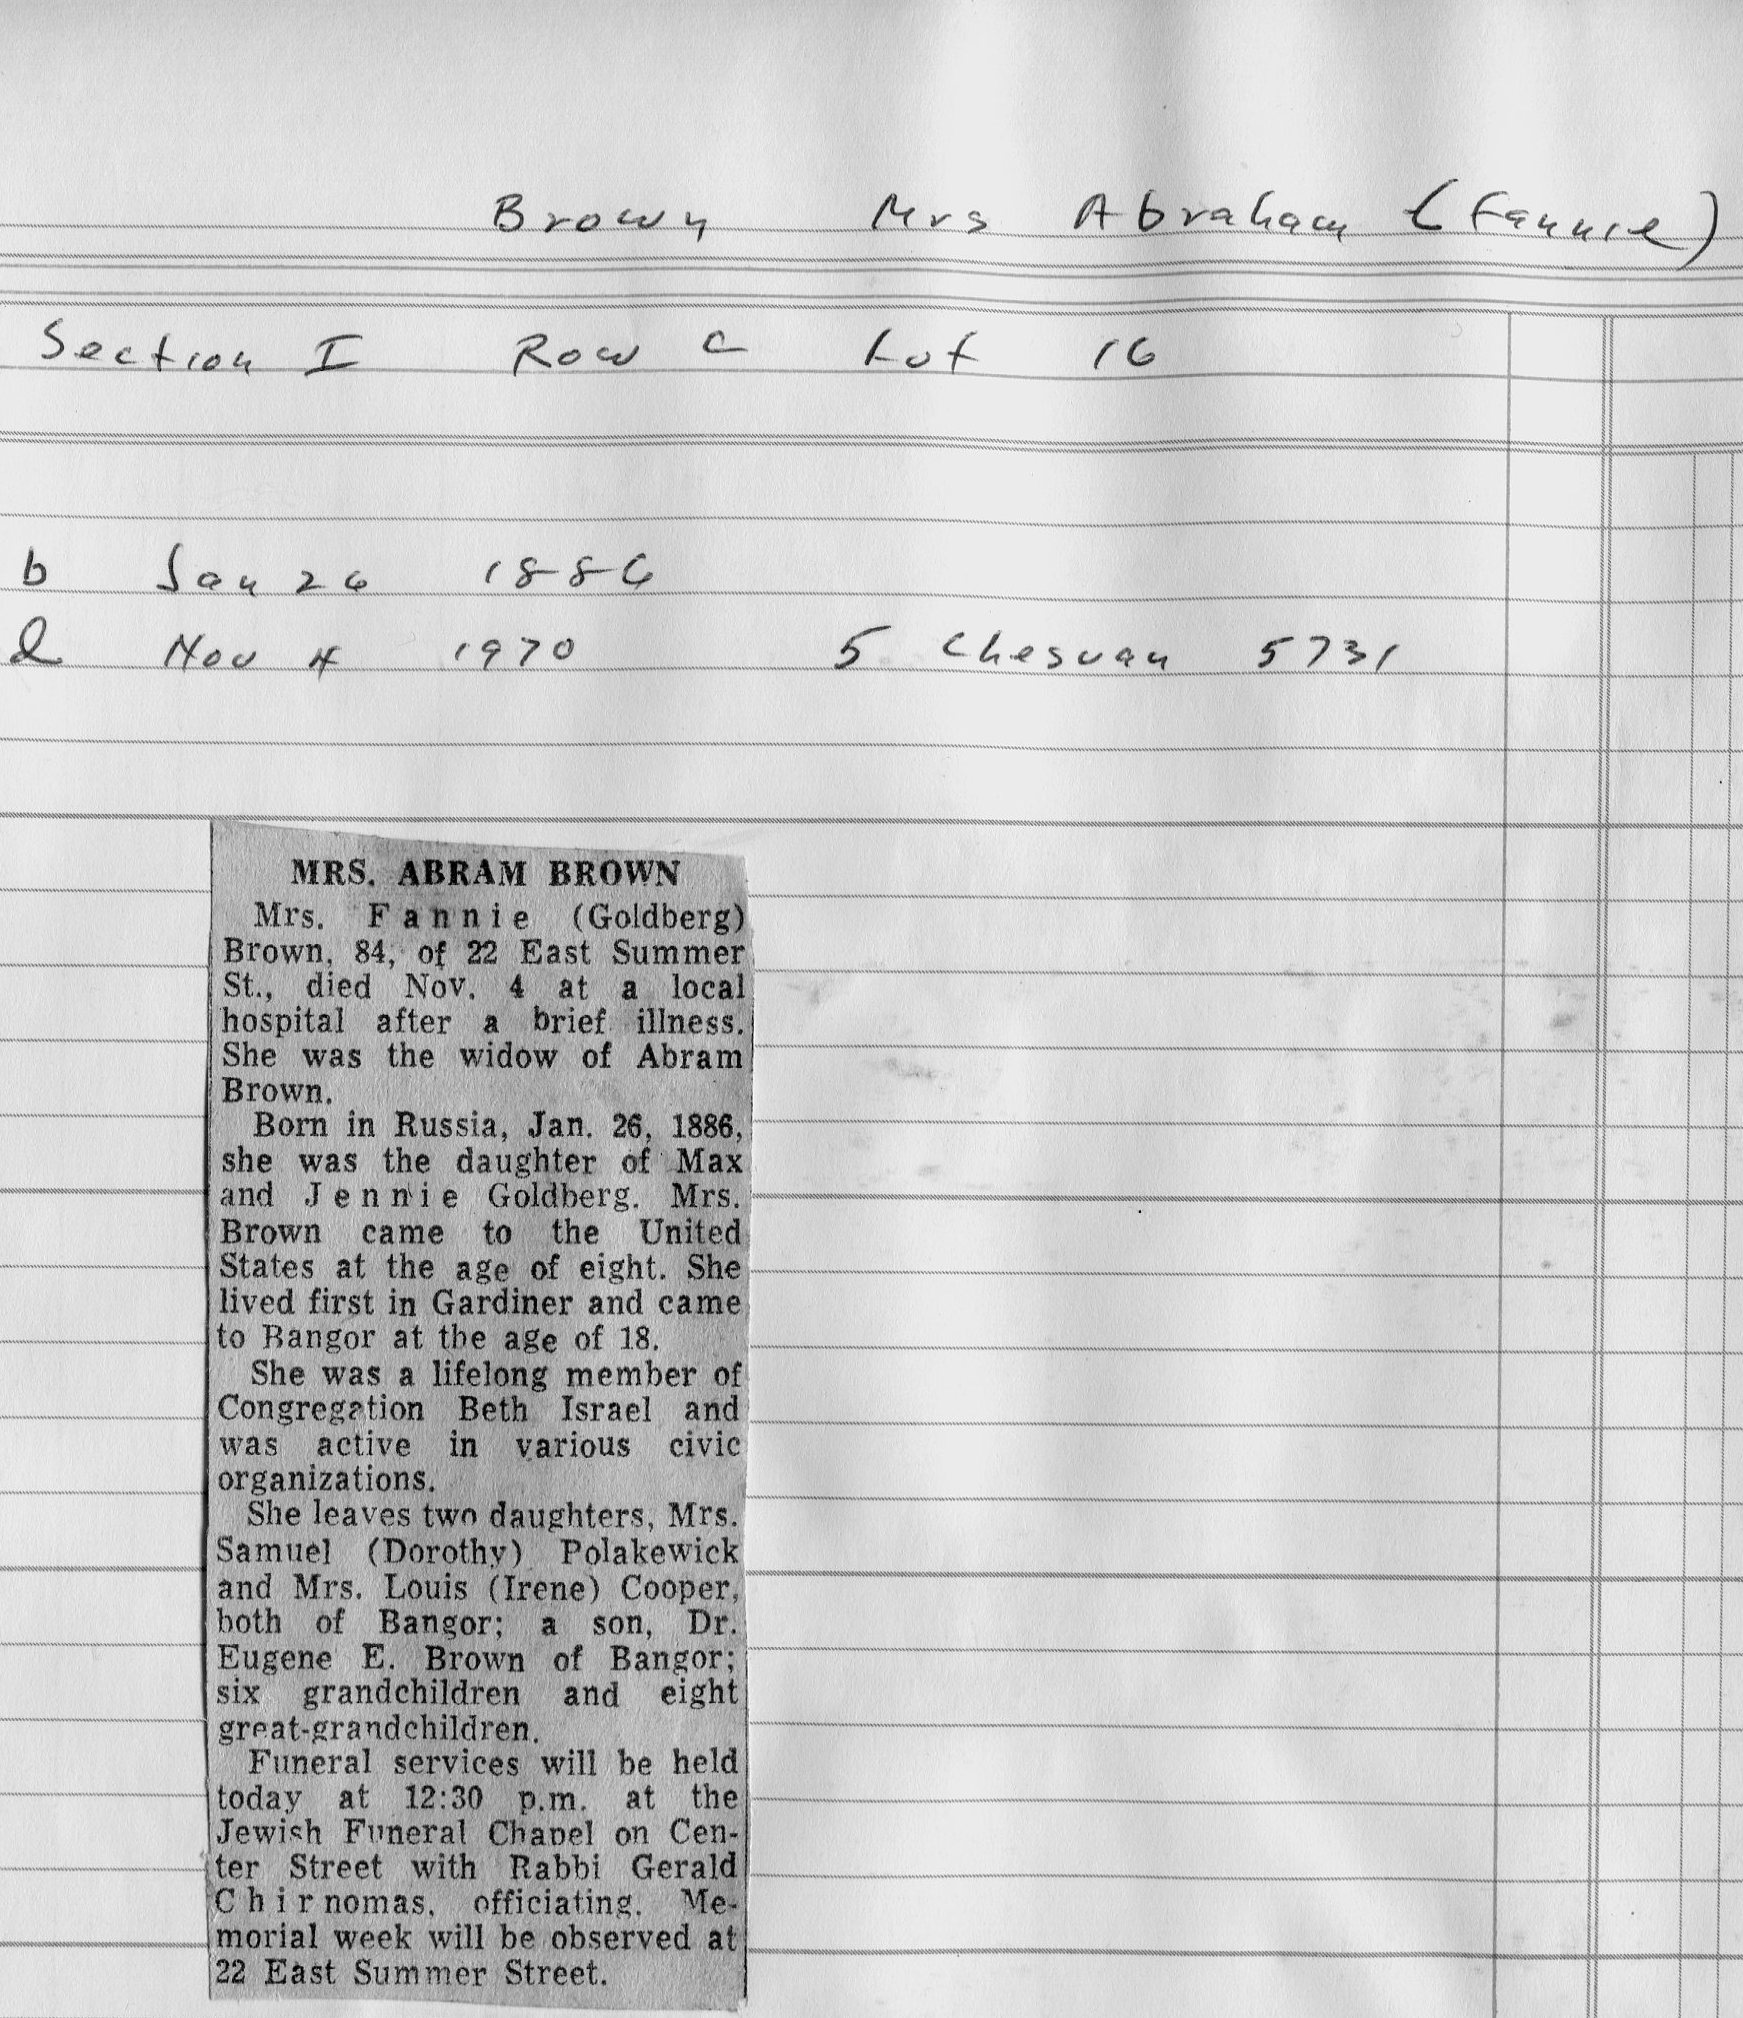 Brown Mrs Abraham (Fannie)
Section I Row C Lot 16
b Jan 26 1886
d Nov 4 1970 5 Chesvan 5731
MRS. ABRAM BROWN
Mrs. Fannie (Goldberg)
Brown, 84, of 22 East Summer
St., died Nov. 4 at a local
hospital after a brief illness.
She was the widow of Abram
Brown.
Born in Russia, Jan. 26, 1886,
she was the daughter of Max
and Jennie Goldberg. Mrs.
Brown came to the United
States at the age of eight. She
lived first in Gardiner and came
to Bangor at the age of 18.
She was a lifelong member of
Congregation Beth Israel and
was active in various civic
organizations.
She leaves two daughters, Mrs.
Samuel (Dorothy) Polakewick
and Mrs. Louis (Irene) Cooper,
both of Bangor; a son, Dr.
Eugene E. Brown of Bangor;
six grandchildren and eight
great-grandchildren.
Funeral services will be held
today at 12:30 p.m. at the
Jewish Funeral Chapel on Cen-
ter Street with Rabbi Gerald
Chirnomas, officiating. Me-
morial week will be observed at
22 East Summer Street.